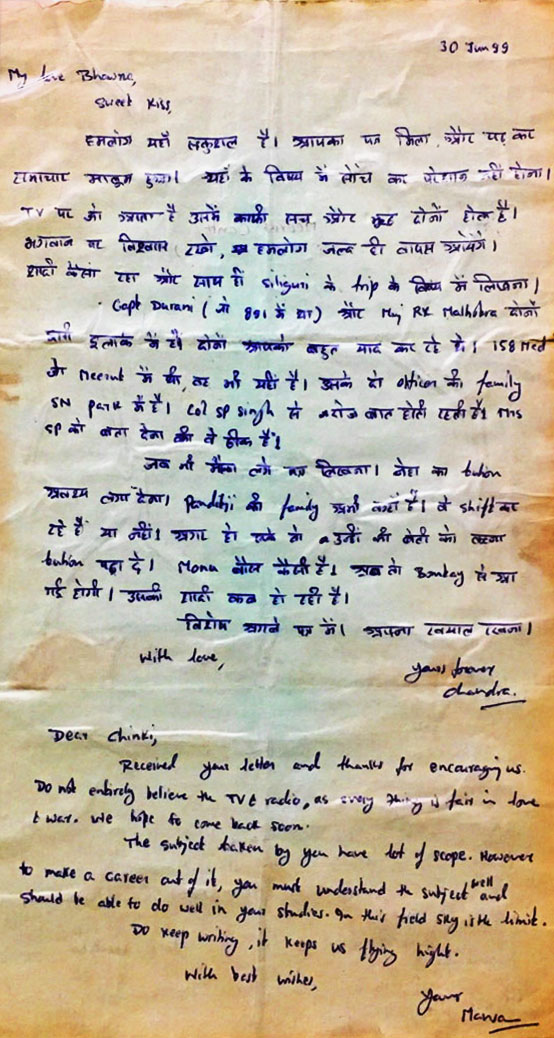 30 Jun 99
My love Bhawna,
Sweet Kiss,
हमलोग यहाँ सकुशल है। आपका पत्र मिला, और पढ़ कर
समाचार मालूम हुआ। यहाँ के विषय में सोंच कर परेशान नहीं होना।
TV पर जो आता है उसमें काफी सच और झूठ दोनों होता है।
भगवान पर विश्वास रखो, हमलोग जल्द ही वापस आयेंगे।
शादी कैसा रहा और साथ ही Siliguri के trip के विषय में लिखना।
Capt Durani (जो 891 में था) और Maj RK Malhotra दोनों
इलाके में है। दोनों आपको बहुत याद कर रहे थे। 158 Med
जो Meerut में थी, वह भी यहीं है। उसके दो officer की family
SN Park में है। Col SP Singh से रोज बात होती रहती है। Mrs
SP को बता देना की वे ठीक हैं।
जब भी मौका लगे पत्र लिखना। नेहा का tution
अवश्य लगा देना। Panditji की family अभी कहाँ है। वे shift कर
रहे हैं या नहीं। अगर हो सके तो उन्हीं की बेटी को कहना
tution पढ़ा दे। Mona कैसी है। अब तो Bombay से आ
गई होगी। उसकी शादी कब हो रही है।
विशेष अगले पत्र में। अपना ख्याल रखना।
With love,
Yours forever
Chandra.
Dear Chinki,
Received your letter and thanks for encouraging us.
Do not entirely believe the TV & radio, as every thing is fair in love
& war. We hope to come back soon.
The subject taken by you have lot of scope. However
to make a career out of it, you must understand the subject well and
should be able to do well in your studies. In this field sky is the limit.
Do keep writing, it keeps us flying hight.
With best wishes,
Yours